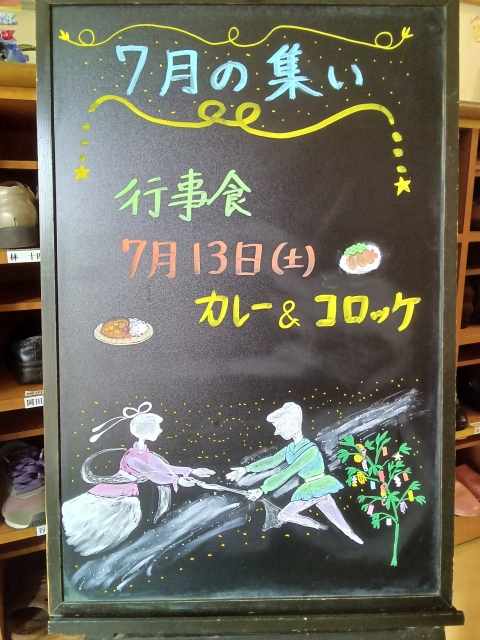 7月の集い
行事食
7月13日(土)
カレー&コロッケ
林
岡田